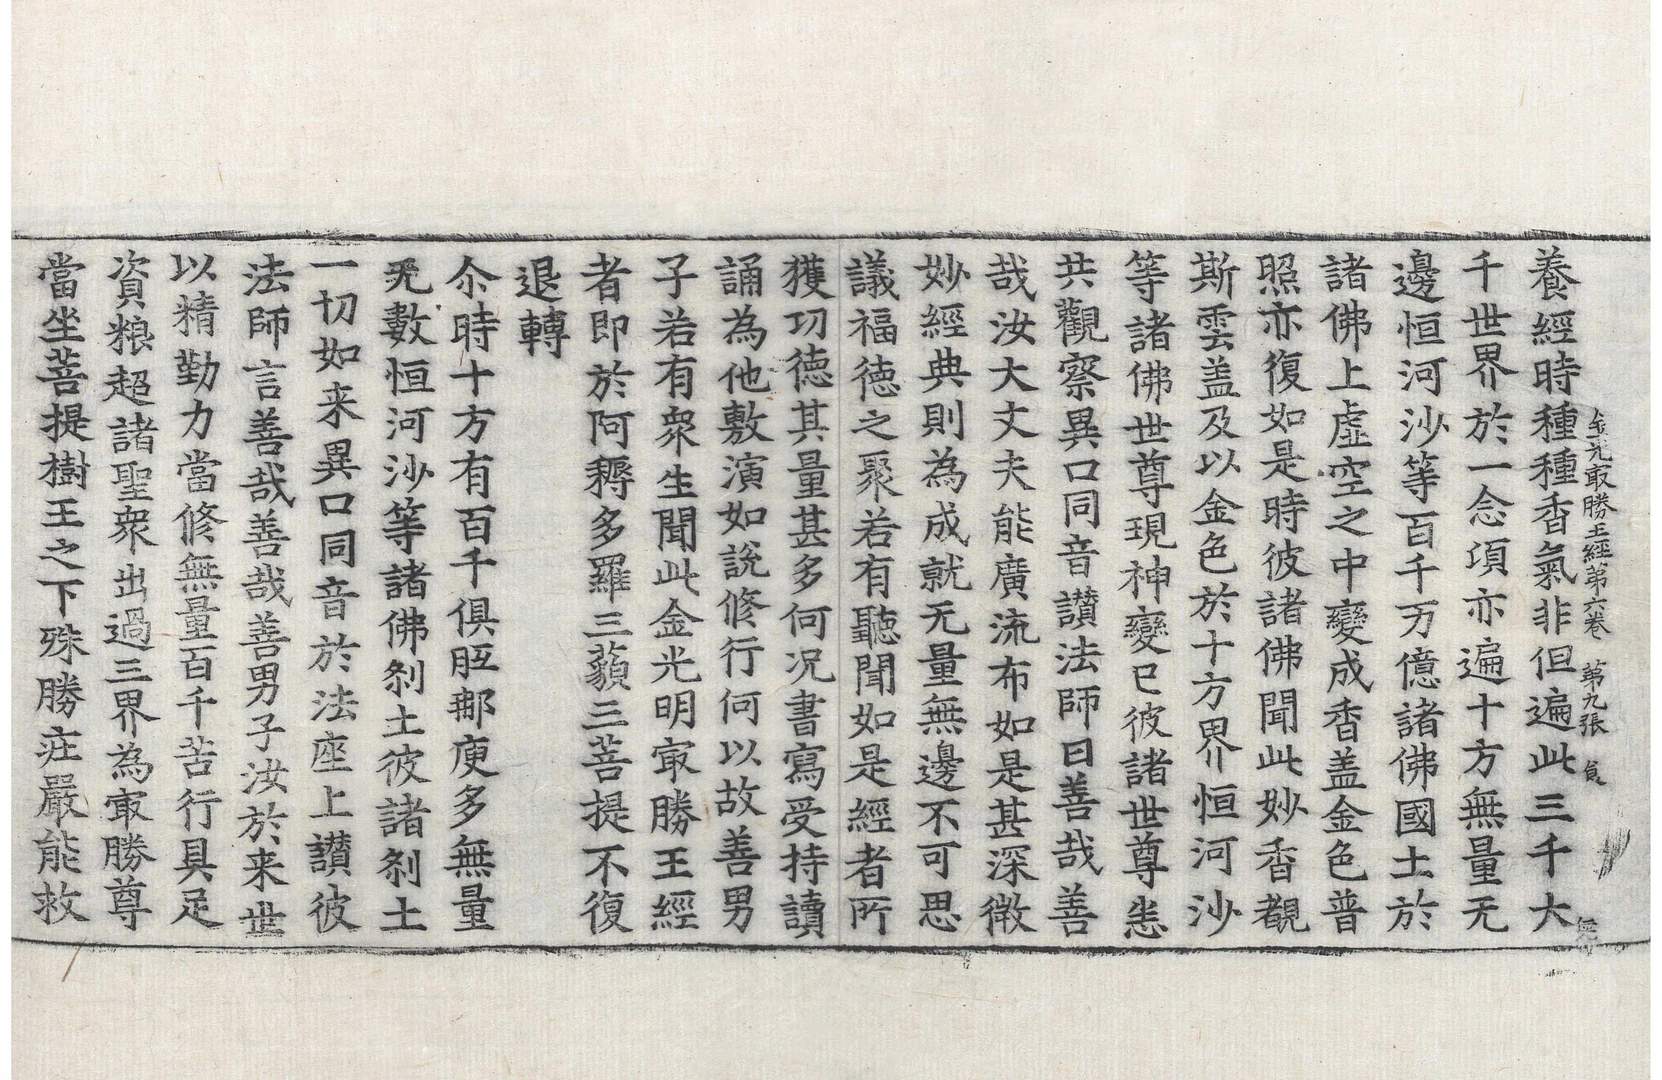 金光㝡勝王經第六卷 第九張 貞
養經時種種香氣非但遍此三千大
千世界於一念項亦遍十方無量无
邊恒河沙等百千万億諸佛國土於
諸佛上虛空之中變成香盖金色普
照亦復如是時彼諸佛聞此妙香覩
斯雲盖及以金色於十方界恒河沙
等諸佛世尊現神變已彼諸世尊悉
共觀察異口同音讃法師曰善哉善
哉汝大丈夫能廣流布如是甚深微
妙經典則為成就无量無邊不可思
議福德之聚若有聽聞如是經者所
獲功德其量甚多何况書寫受持讀
誦為他敷演如說修行何以故善男
子若有衆生聞此金光明㝡勝王經
者即於阿耨多羅三藐三菩提不復
退轉
尒時十方有百千俱胝那庾多無量
无數恒河沙等諸佛刹土彼諸刹土
一切如来異口同音於法座上讃彼
法師言善哉善哉善男子汝於来世
以精勤力當修無量百千苦行具足
資粮超諸聖衆出過三界為㝡勝尊
當坐菩提樹王之下殊勝莊嚴能救